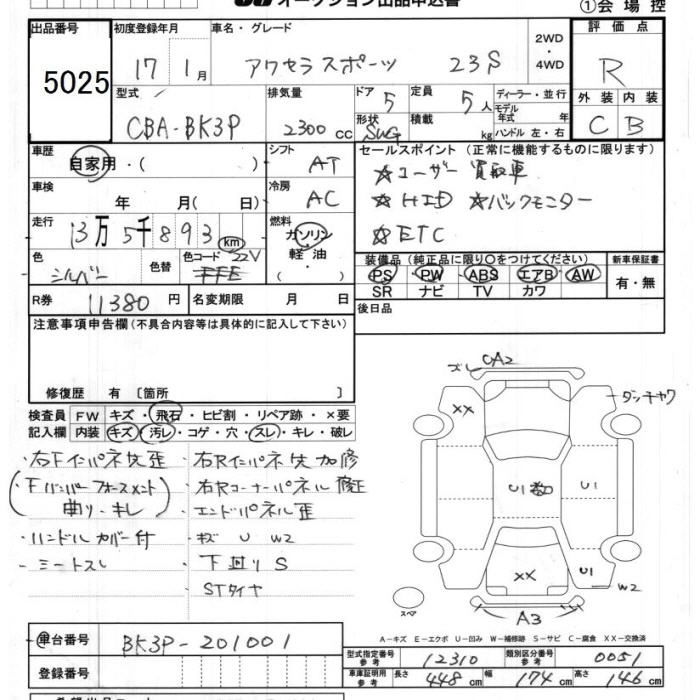 オークション出品申込書
①会場控
出品番号 5025
初度登録年月 17 1月
車名・グレード アクセラスポーツ 23S
2WD
・
4WD
評価点 R
外装 内装
C B
型式 CBA-BK3P
排気量 2300 cc
ドア 5
形状 SWG
定員 5人
積載 kg
ディーラー・並行
モデル
年式 年
ハンドル 左・右
車歴 自家用・( )
車検 年 月( 日)
走行 13万5千893 km
色 シルバー
色替
色コード 22V
R券 11380 円
名変期限 月 日
シフト AT
冷房 AC
燃料 ガソリン
軽油
・( )
セールスポイント (正常に機能するものに限ります)
☆ユーザー買取車
☆HID ☆バックモニター
☆ETC
装備品 (純正品に限り○をつけてください)
PS PW ABS エアB AW
SR ナビ TV カワ
新車保証書
有・無
後日品
注意事項申告欄 (不具合内容等は具体的に記入して下さい)
修復歴 有 〔箇所 〕
検査員 FW キズ・飛石・ヒビ割・リペア跡・×要
記入欄 内装 キズ・汚レ・コゲ・穴・スレ・キレ・破レ
・右Fインパネ先歪
(Fバンパーフォースメント
曲り・キレ)
・ハンドルカバー付
・ミートスレ
・右Rインパネ先加修
・右Rコーナーパネル修正
・エンドパネル歪
・キズ U W2
・下廻りS
・STタイヤ
ズレ A2
XX
タッチヤワ
U1
U1
XX
U1
W2
スペア
A3
A-キズ E-エクボ U-凹み W-補修跡 S-サビ C-腐食 XX-交換済
車台番号 BK3P-201001
登録番号
型式指定番号
参考
12310
類別区分番号
参考
0051
車庫証明用
参考
長さ 448cm 幅 174cm 高さ 146cm